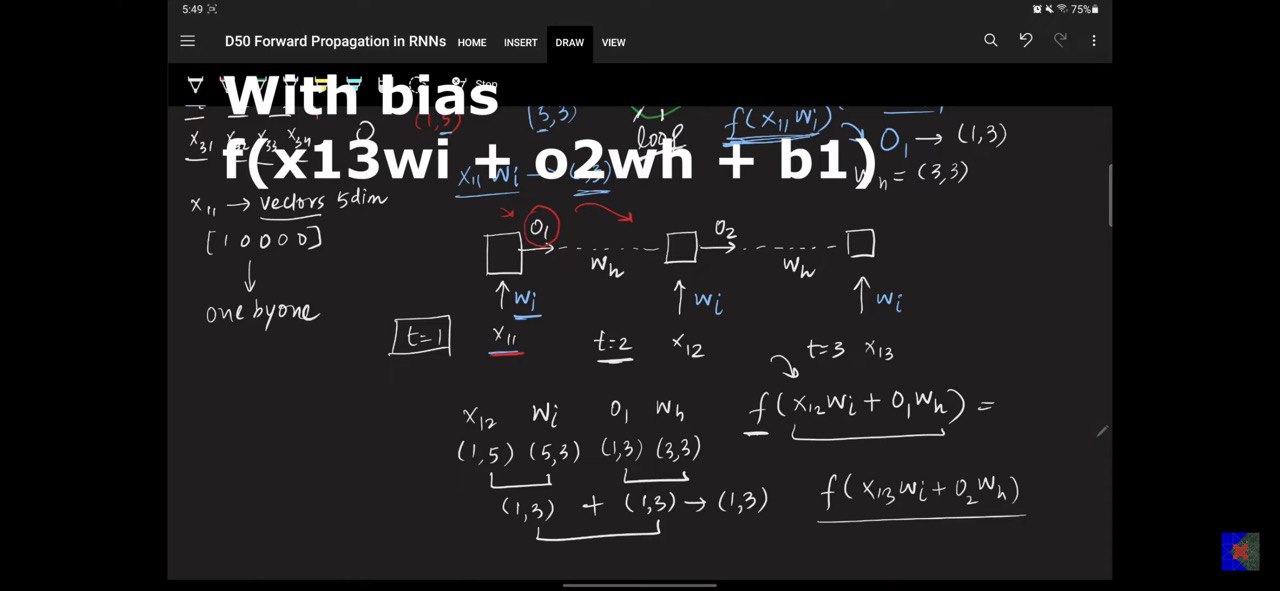 5:49 75%
D50 Forward Propagation in RNNs HOME INSERT DRAW VIEW
Stop
With bias
f(x13wi + o2wh + b1)
x31 x32 x33 x34
(1,5) (3,3) loop f(x11 wi) O1 → (1,3)
x11 wi → (1,3) wh = (3,3)
x11 → vectors 5dim
[1 0 0 0 0]
one by one
O1 O2
wh wh
wi wi wi
t=1 x11 t=2 x12 t=3 x13
x12 wi O1 wh f(x12wi + O1wh) =
(1,5) (5,3) (1,3) (3,3)
(1,3) + (1,3) → (1,3) f(x13wi + O2wh)